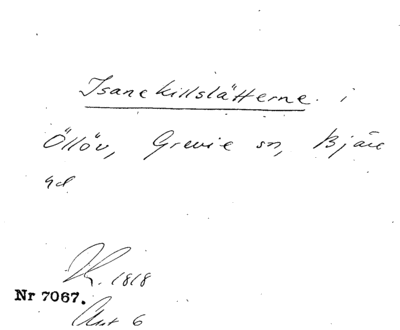 Isanekillslätterne i
Öllöv, Grevie sn, Bjäre
hd
1818
Nr 7067.
Akt 6